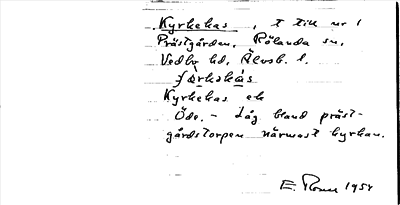 Kyrkekas, t till nr 1
Prästgården, Rölanda sn,
Vedbo hd, Älvsb. l.
Kyrkekas ek
Öde. - Låg bland präst-
gårdstorpen närmast kyrkan.
E. 1954